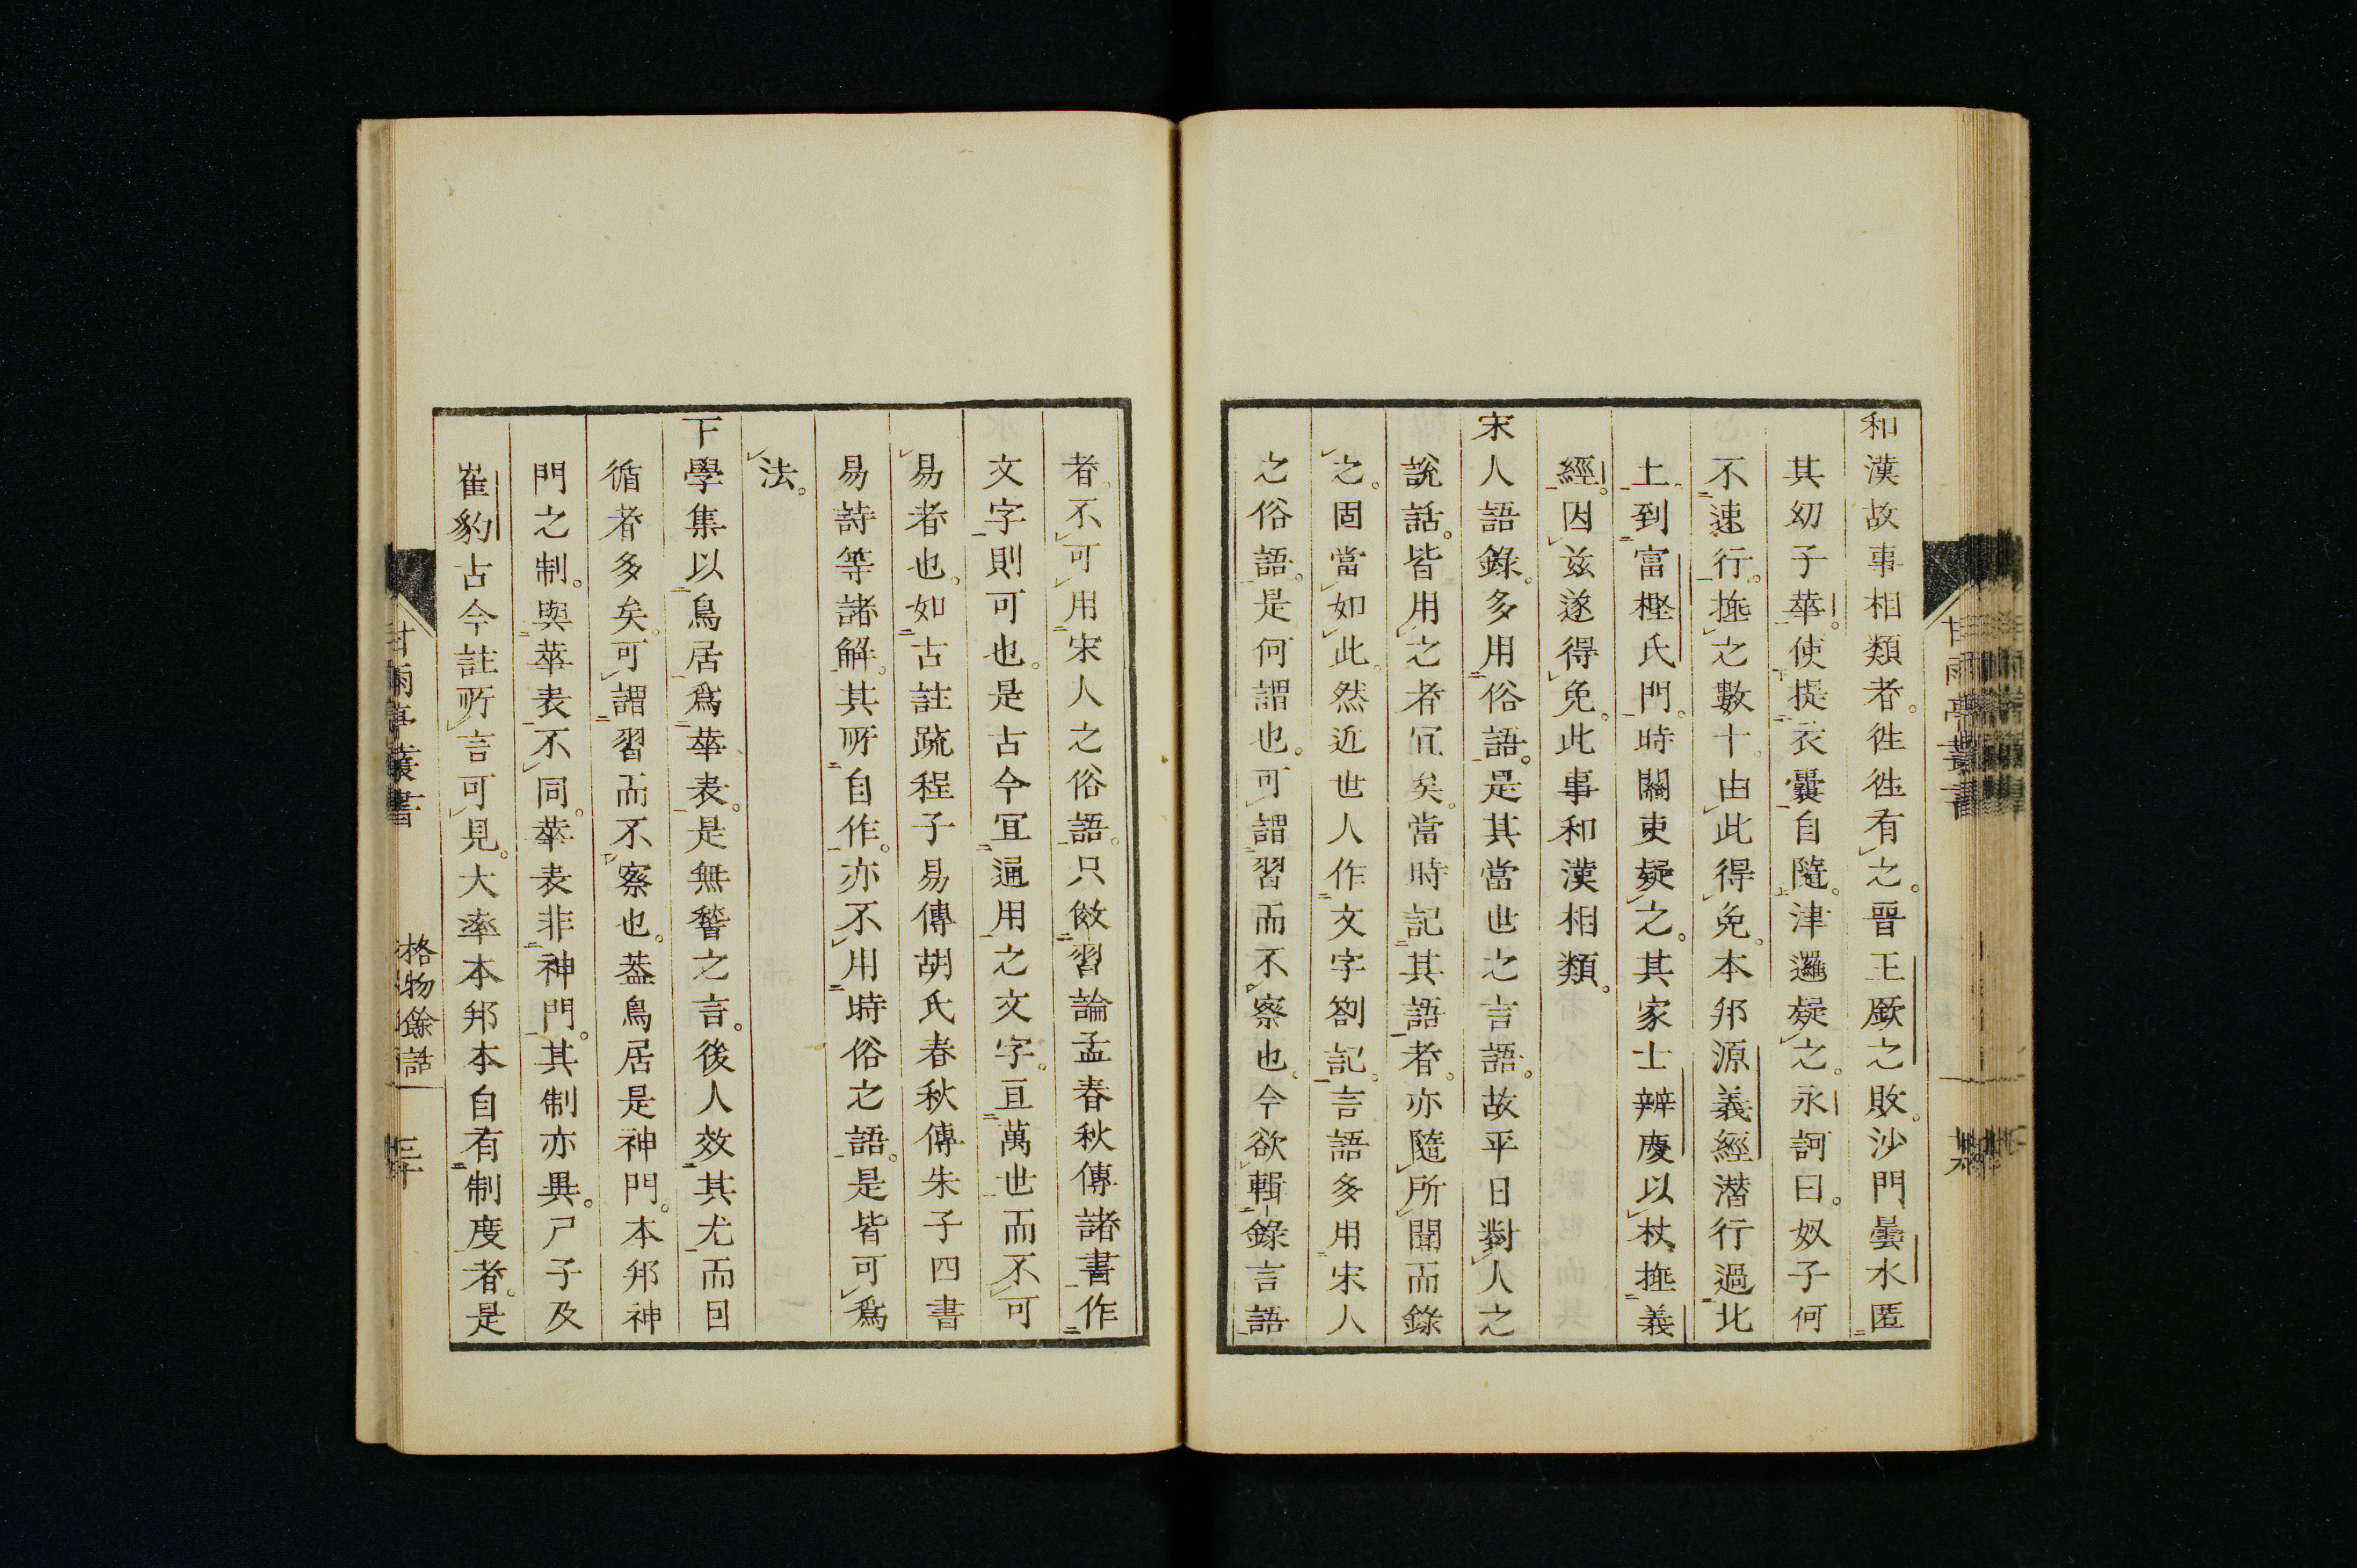 和漢故事相類者。徃徃有之。晋王厥之敗。沙門曇氷匿
其幼子華。使提衣囊自隨。津邏疑之。永訶曰。奴子何
不速行。捶之數十。由此得免。本邦源義經潜行過北
土。到富樫氏門。時關吏疑之。其家士辨慶以杖捶義
經。因茲遂得免。此事和漢相類。
宋人語錄。多用俗語。是其當世之言語。故平日對人之
說話。皆用之者冝矣。當時記其語者。亦隨所聞而錄
之。固當如此。然近世人作文字劄記。言語多用宋人
之俗語。是何謂也。可謂習而不察也。今欲輯錄言語
者。不可用宋人之俗語。只倣習論孟春秋傳諸書作
文字則可也。是古今冝通用之文字。亘萬世而不可
易者也。如古註疏程子易傳胡氏春秋傳朱子四書
易詩等諸解。其所自作。亦不用時俗之語。是皆可爲
法。
下學集以鳥居爲華表。是無稽之言。後人效其尤而因
循者多矣。可謂習而不察也。葢鳥居是神門。本邦神
門之制。與華表不同。華表非神門。其制亦異。尸子及
崔豹古今註所言可見。大率本邦本自有制度者。是
甘雨亭叢書
格物餘話
三十
甘雨亭叢書